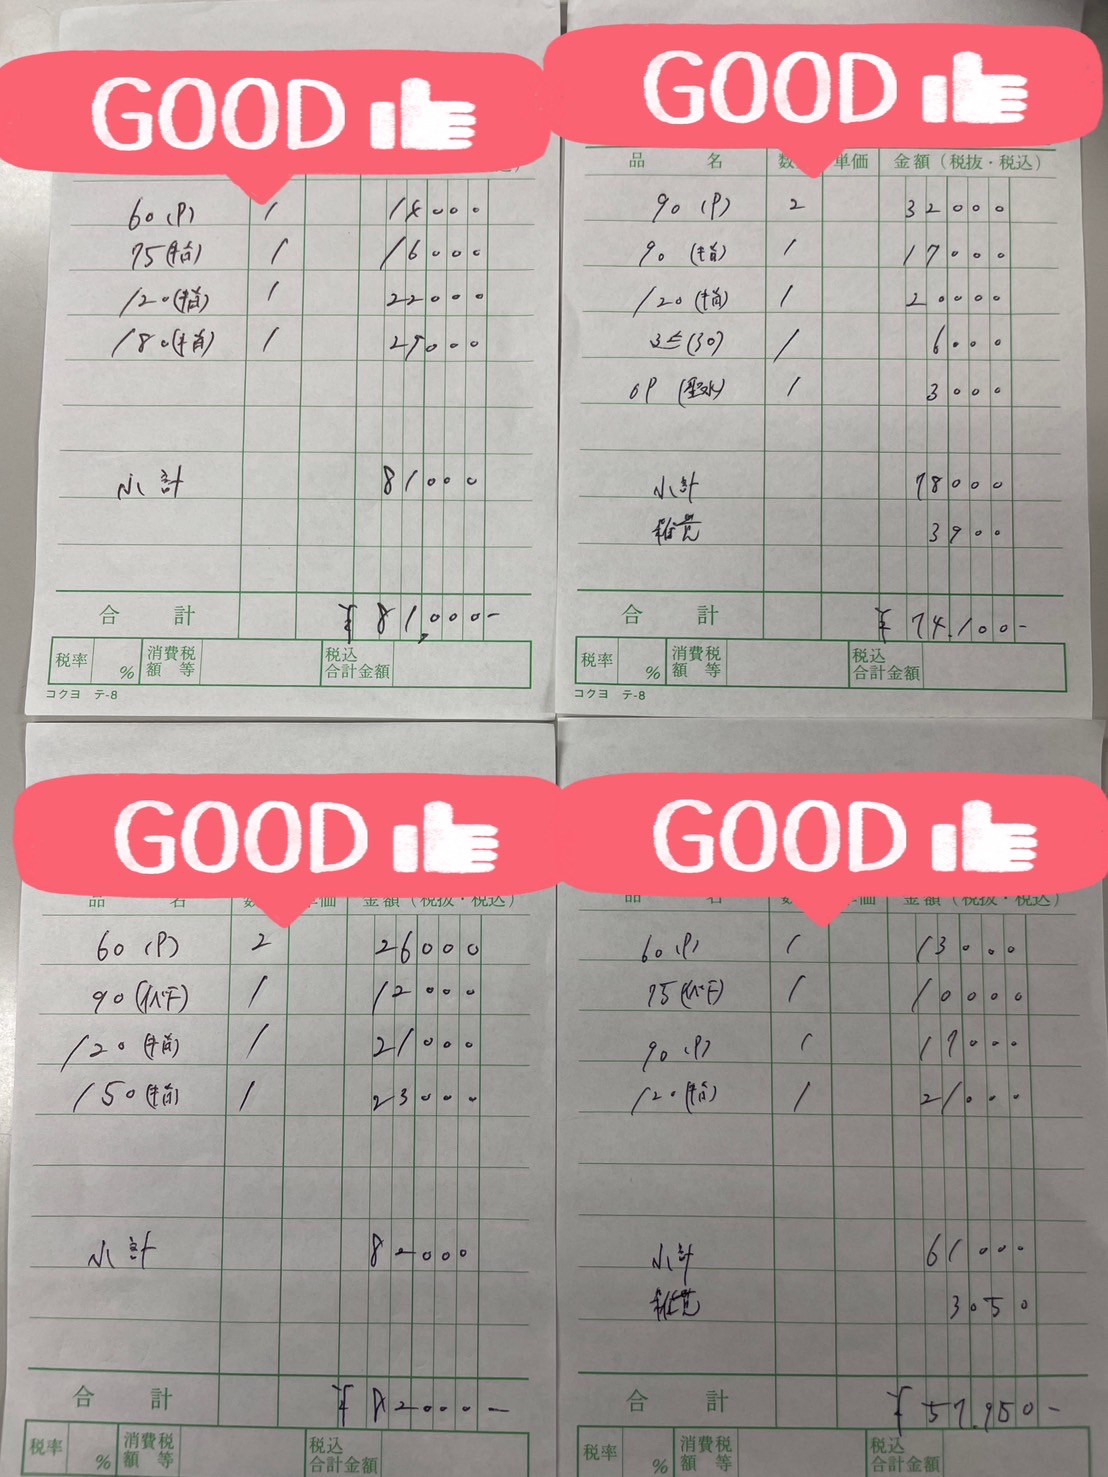 GOOD
60 (P) 1 14000
75(指) 1 16000
120(指) 1 22000
180(指) 1 29000
小計 81000
合計 ¥81,000-
税率 % 消費税額等 税込合計金額
コクヨ テ-8
GOOD
品名 数 単価 金額（税抜・税込）
90 (P) 2 32000
90 (指) 1 17000
120(指) 1 20000
(30) 1 6000
OP (聖水) 1 3000
小計 78000
雑費 3900
合計 ¥74,100-
税率 % 消費税額等 税込合計金額
コクヨ テ-8
GOOD
品名 数 価 金額（税抜・税込）
60 (P) 2 26000
90 1 12000
120 (指) 1 21000
150(指) 1 23000
小計 82000
合計 ¥82000-
税率 % 消費税額等 税込合計金額
GOOD
品名 価 金額（税抜・税込）
60 (P) 1 13000
75 1 10000
90 (P) 1 17000
120(指) 1 21000
小計 61000
雑費 3050
合計 ¥57,950-
税率 % 消費税額等 税込合計金額